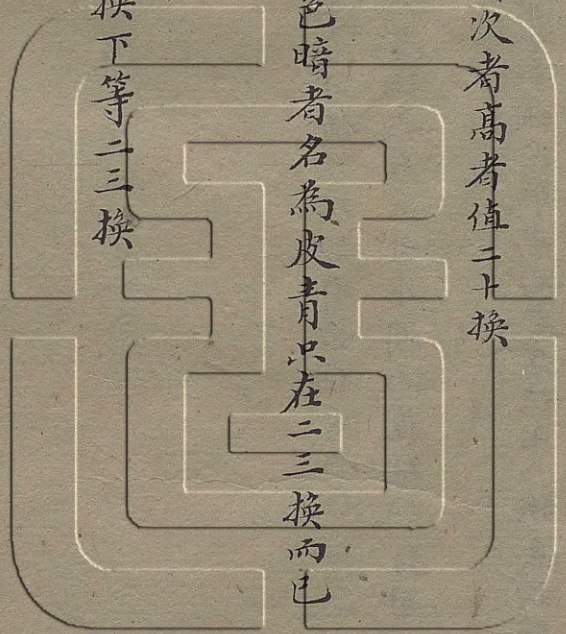 次者高者值二十換
色暗者名為皮青只在二三換而已
換下等二三換